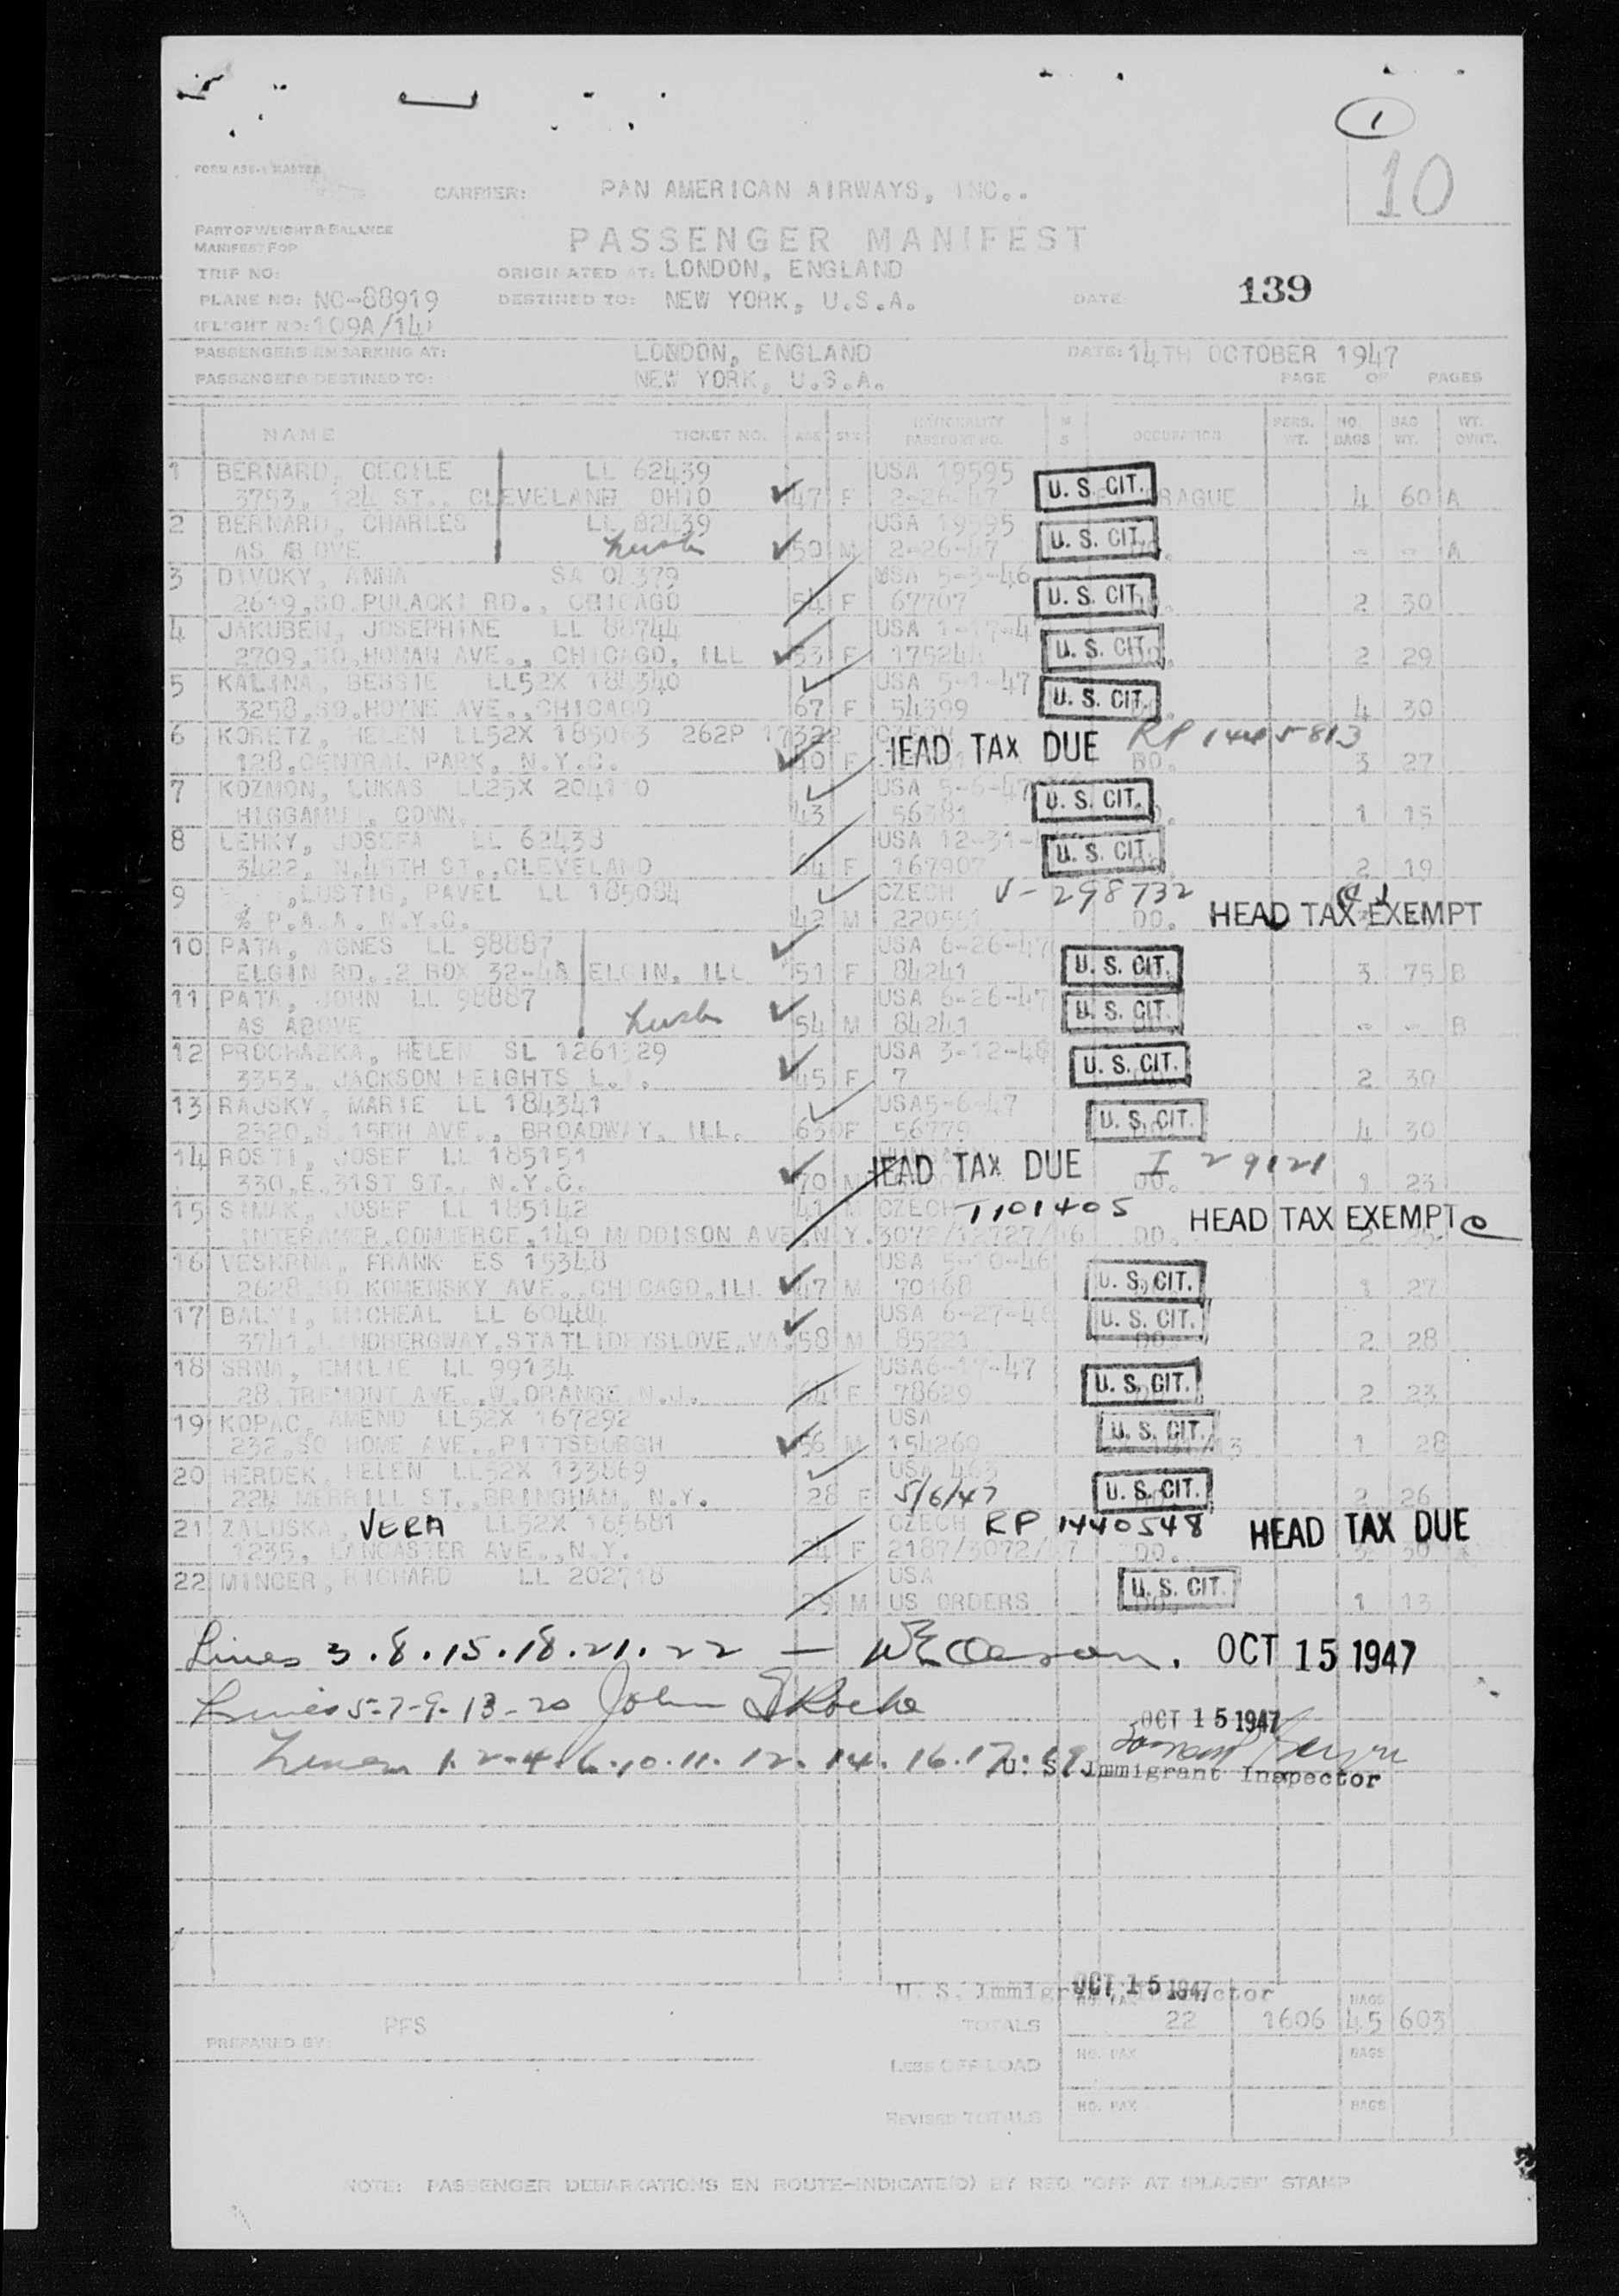 1
10
FORM
CARRIER: PAN AMERICAN AIRWAYS, INC..
PART OF WEIGHT & BALANCE
MANIFEST FOR
PASSENGER MANIFEST
TRIP NO: ORIGINATED AT: LONDON, ENGLAND
PLANE NO: NC-88919 DESTINED TO: NEW YORK, U.S.A. DATE: 139
(FLIGHT NO: 109A/14)
PASSENGERS EMBARKING AT: LONDON, ENGLAND DATE: 14TH OCTOBER 1947
PASSENGERS DESTINED TO: NEW YORK, U.S.A. PAGE OF PAGES
NAME TICKET NO. AGE SEX NATIONALITY PASSPORT NO. M S OCCUPATION PERS. WT. NO. BAGS BAG WT. WT. OVNT.
1 BERNARD, CECILE LL 62439 USA 19595
3753, 124 ST., CLEVELAND OHIO 47 F 2-26-47 U. S. CIT. PRAGUE 4 60 A
2 BERNARD, CHARLES LL 82439 USA 19595
AS ABOVE husb 50 M 2-26-47 U. S. CIT. - - A
3 DIVOKY, ANNA USA 5-3-46
2619, SO. PULACKI RD., CHICAGO 54 F 67707 U. S. CIT. 2 30
4 JAKUBEN, JOSEPHINE LL 88744 USA
2709, SO. HOMAN AVE., CHICAGO, ILL 53 F U. S. CIT. 2 29
5 KALINA, BESSIE LL52X 184340 USA 5-1-47
3258, SO. HOYNE AVE., CHICAGO 67 F 54399 U. S. CIT. 4 30
6 KORETZ, HELEN LL52X 262P HEAD TAX DUE RP 1445813
128, CENTRAL PARK, N.Y.C. 40 F DO. 3 27
7 KOZMON, LUKAS LL25X USA 5-6-47
CONN. 43 56381 U. S. CIT. 1 15
8 LEHKY, JOSEFA LL 62438 USA 12-31-
3422, N.45TH ST., CLEVELAND 64 F 167907 U. S. CIT. 2 19
9 LUSTIG, PAVEL LL 185084 CZECH V-298732
% P.A.A. N.Y.C. 42 M DO. HEAD TAX EXEMPT
10 PATA, AGNES LL 98887 USA 6-26-47
ELGIN RD. 2 BOX 32-4A ELGIN, ILL 51 F 84241 U. S. CIT. 3 75 B
11 PATA, JOHN LL 98887 USA 6-26-47
AS ABOVE husb 54 M 84241 U. S. CIT. - - B
12 PROCHAZKA, HELEN SL USA 3-12-48
3353, JACKSON HEIGHTS 45 F 7 U. S. CIT. 2 30
13 RAJSKY, MARIE LL 184341 USA5-6-47
2320, AVE., BROADWAY, ILL. 63 F 56779 U. S. CIT. 4 30
14 ROSTI, JOSEF LL 185151 HEAD TAX DUE I 29121
330, E. 31ST ST., N.Y.C. 70 M DO. 1 23
15 SIMAK, JOSEF LL 185142 41 M CZECH T101405
INTERAMER. COMMERCE, 149 MADDISON AVE, N.Y. DO. HEAD TAX EXEMPT
16 VESKRNA, FRANK ES 15348 USA 5-10-46
2628, SO KOMENSKY AVE., CHICAGO, ILL 47 M 70168 U. S. CIT. 1 27
17 MICHEAL LL 60484 USA 6-27-46
58 M 85221 U. S. CIT. 2 28
18 SRNA, EMILIE LL 99134 USA6-17-47
28, TREMONT AVE., W. ORANGE, N.J. 64 F 78629 U. S. CIT. 2 23
19 KOPAC, AMEND LL52X 167292 USA
232, SO HOME AVE., PITTSBURGH 56 M 154260 U. S. CIT. 1 28
20 HERDEK, HELEN LL52X 133869 USA 463
MERRILL ST., BRINGHAM, N.Y. 28 F 5/6/47 U. S. CIT. 2 26
21 ZALUSKA, VERA LL52X 165681 CZECH RP 1440548 HEAD TAX DUE
1235, LANCASTER AVE., N.Y. F DO. 3 30
22 MINCER, RICHARD LL 202718 USA
29 M US ORDERS U. S. CIT. 1 13
Lines 3.8.15.18.21.22 — OCT 15 1947
Lines 5-7-9-13-20 John Roche
OCT 15 1947
Lines 1.2.4.6.10.11.12.14.16.17.19
U. S. Immigrant Inspector
U. S. Immigrant Inspector OCT 15 1947
PREPARED BY: PFS TOTALS NO. PAX 22 1606 BAGS 45 603
LESS OFF LOAD NO. PAX BAGS
REVISED TOTALS NO. PAX BAGS
NOTE: PASSENGER DEBARKATIONS EN ROUTE-INDICATE(D) BY RED "OFF AT (PLACE)" STAMP